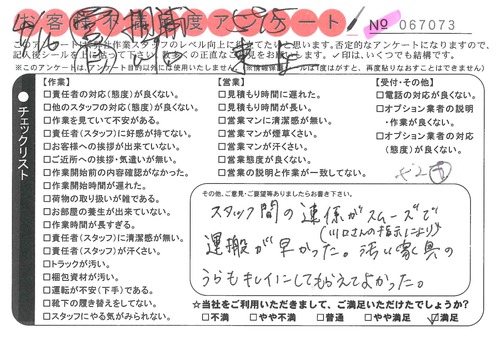 お客様満足度アンケート
No 067073
このアンケートは弊社作業スタッフのレベル向上に役立てたいと思います。否定的なアンケートになりますので、
【作業】
□責任者の対応(態度)が良くない。
□他のスタッフの対応(態度)が良くない。
□作業を見ていて不安がある。
□責任者(スタッフ)に好感が持てない。
□お客様への挨拶が出来ていない。
□ご近所への挨拶・気遣いが無い。
□作業開始前の内容確認がなかった。
□作業開始時間が遅れた。
□荷物の取り扱いが雑である。
□お部屋の養生が出来ていない。
□作業時間が長すぎる。
□責任者(スタッフ)に清潔感が無い。
□責任者(スタッフ)が汗くさい。
□トラックが汚い。
□梱包資材が汚い。
□運転が不安(下手)である。
□靴下の履き替えをしてない。
□スタッフにやる気がみられない。
【営業】
□見積もり時間に遅れた。
□見積もり時間が長い。
□営業マンに清潔感が無い。
□営業マンが煙草くさい。
□営業マンが汗くさい。
□営業態度が良くない。
□営業の説明と作業が一致してない。
【受付・その他】
□電話の対応が良くない。
□オプション業者の説明
・作業が良くない。
□オプション業者の対応
(態度)が良くない。
チェックリスト
その他、ご意見・ご要望等ありましたらお書き下さい。
スタッフ間の連係がスムーズで
(川口さんの指示により)
運搬が早かった。汚い家具の
うらもキレイにしてもらえてよかった。
☆当社をご利用いただきまして、ご満足いただけたでしょうか?
□不満 □やや不満 □普通 □やや満足 ☑満足